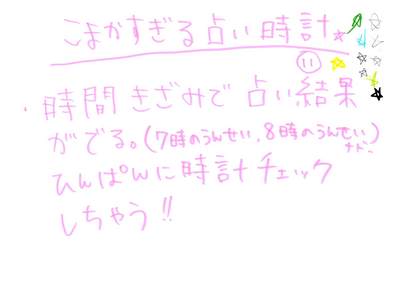 こまかすぎる占い時計☆
⑪
時間きざみで占い結果
がでる。(7時のうんせい、8時のうんせい)
ナド
ひんぱんに時計チェック
しちゃう!!